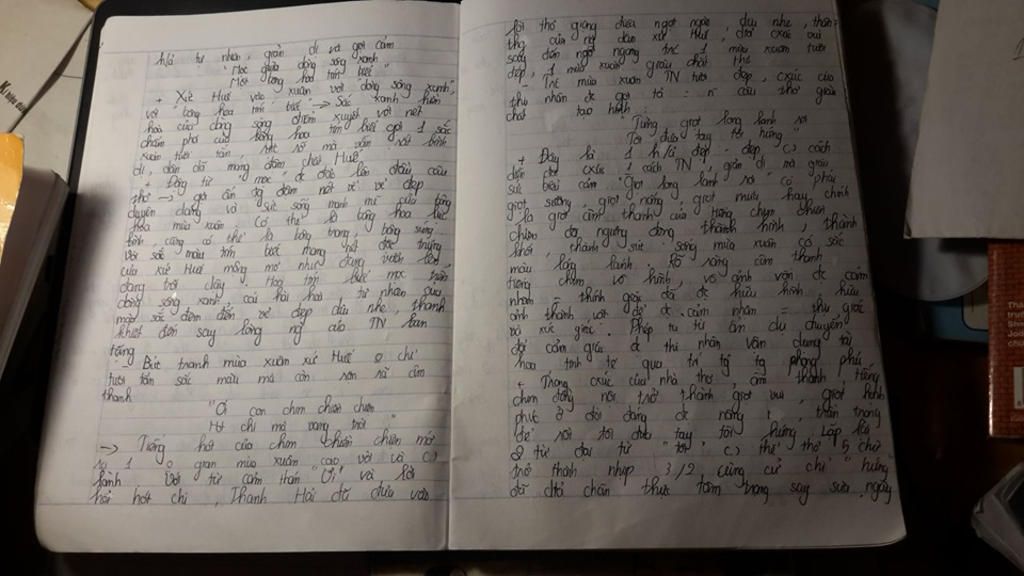 h/á tự nhiên, giản dị và gợi cảm
"Mọc giữa dòng sông xanh
Một bông hoa tím biếc"
+ Xứ Huế vào xuân với dòng sông xanh,
với bông hoa tím biếc → Sắc xanh hiền
hoà của dòng sông điểm xuyết với nét
chấm phá của bông hoa tím biếc gợi 1 sắc
xuân tươi tắn, rực rỡ mà vẫn rất bình
dị, dân dã mang đậm chất Huế
+ Động từ "mọc" đc đảo lên đầu câu
thơ → gợi ấn tg đậm nét về vẻ đẹp
duyên dáng và sức sống mạnh mẽ của bông
hoa mùa xuân. Có thể là bông hoa lục
bình, cũng có thể là bông trang, bông súng
với sắc màu tím biếc mang nét đặc trưng
của xứ Huế mộng mơ như đang vươn lên
đang trỗi dậy. Hoa tím biếc mọc trên
dòng sông xanh, cái hài hoà tự nhiên của
màu sắc đem đến vẻ đẹp dịu nhẹ, thanh
khiết đến say lòng ng của TN ban
tặng
- Bức tranh mùa xuân xứ Huế o chỉ
tươi tắn sắc màu mà còn rộn rã âm
thanh
"Ơi con chim chiền chiện
Hót chi mà vang trời"
→ Tiếng hót của chim chiền chiện mở
ra 1 o gian mùa xuân cao vời và
lành. Với từ cảm thán "Ơi" và lời
hỏi hót chi, Thanh Hải đã đưa vào
lời thơ giọng điệu ngọt ngào, dịu nhẹ, thân
thg của ng dân xứ Huế, đó cxúc vui
say đến ngỡ ngàng trc 1 mùa xuân tươi
đẹp, 1 mùa xuân giàu chất thơ
- Trc mùa xuân TN tươi đẹp, cxúc của
thi nhân đc gợi tả = n câu thơ giàu
chất tạo hình:
"Từng giọt long lanh rơi
Tôi đưa tay tôi hứng"
+ Đây là 1 h/á đẹp, đẹp cách
diễn đạt cxúc cách TN, giản dị mà giàu
sức biểu cảm. "Giọt long lanh rơi" có phải
giọt sương, giọt nắng, giọt mưa hay chính
là giọt âm thanh của tiếng chim chiền
chiện đã ngưng đọng thành hình, thành
khối, thành sức sống mùa xuân có sắc
màu lóng lánh. Rõ ràng âm thanh
tiếng chim vô hình, vô ảnh vốn đc cảm
nhận = thính giác đã đc hữu hình, hữu
ảnh thành vật để đc cảm nhận = thị giác
và xúc giác. Phép tu từ ẩn dụ chuyển
đổi cảm giác đc thi nhân vận dụng tài
hoa tinh tế qua trí tg tg phong phú
+ Trong cxúc của nhà thơ, âm thanh tiếng
chim đang nói trở thành giọt vui, giọt hạnh
phúc ở đời đang đc nâng, trân trọng
để rồi tôi đưa tay tôi hứng. Lặp lại
2 từ đại từ "tôi" thể thơ 5 chữ
trở thành nhịp 3/2, cùng cử chỉ "hứng"
đã chân thực tâm trạng say sưa ngây